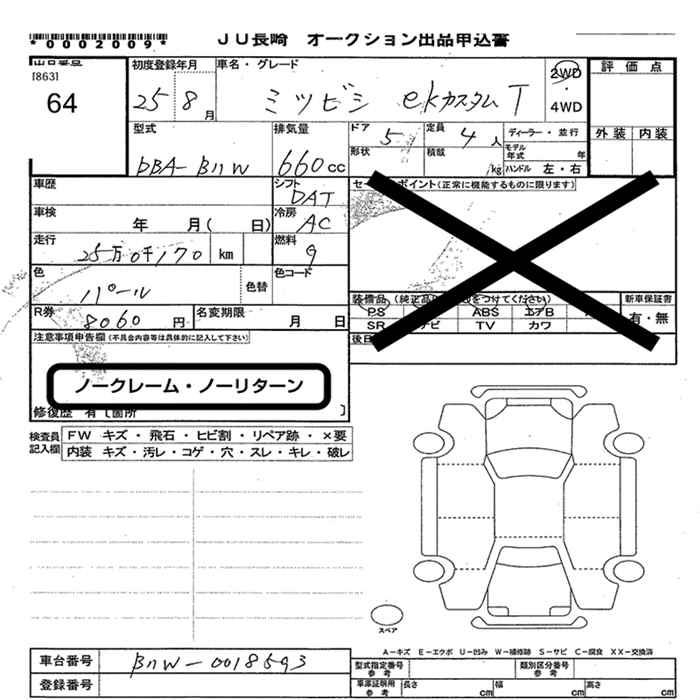 *0002009* JU長崎 オークション出品申込書
出品番号 初度登録年月 車名・グレード 2WD 評価点
[863]
64 25 8月 ミツビシ ekカスタムT 4WD
型式 排気量 ドア 5 定員 4人 ディーラー・並行 外装 内装
DBA-B11W 660cc 形状 積載 kg モデル年式 年
ハンドル 左・右
車歴 シフト DAT セールスポイント(正常に機能するものに限ります)
車検 年 月( 日) 冷房 AC
走行 25万0千170 km 燃料 g
色 パール 色替 色コード
装備品(純正品 をつけてください) 新車保証書
R券 8060円 名変期限 月 日 PS ABS エアB 有・無
SR ナビ TV カワ
注意事項申告欄(不具合内容等は具体的に記入して下さい) 後日
ノークレーム・ノーリターン
修復歴 有 [箇所 ]
検査員記入欄 FW キズ・飛石・ヒビ割・リペア跡・×要
内装 キズ・汚レ・コゲ・穴・スレ・キレ・破レ
スペア
A-キズ E-エクボ U-凹み W-補修跡 S-サビ C-腐食 XX-交換済
車台番号 B11W-0018593 型式指定番号参考 類別区分番号参考
登録番号 車庫証明用参考 長さ cm 幅 cm 高さ cm